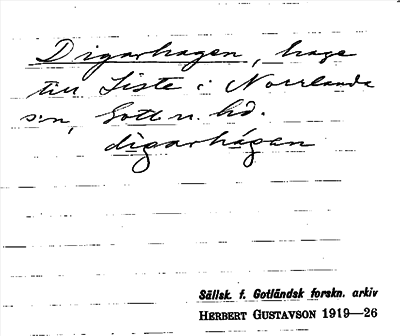 Digarhagen, hage
till Liste i Norrlanda
s:n, Gotl. n. hd.
dìgarhágan
Sällsk. f. Gotländsk forskn. arkiv
HERBERT GUSTAVSON 1919—26